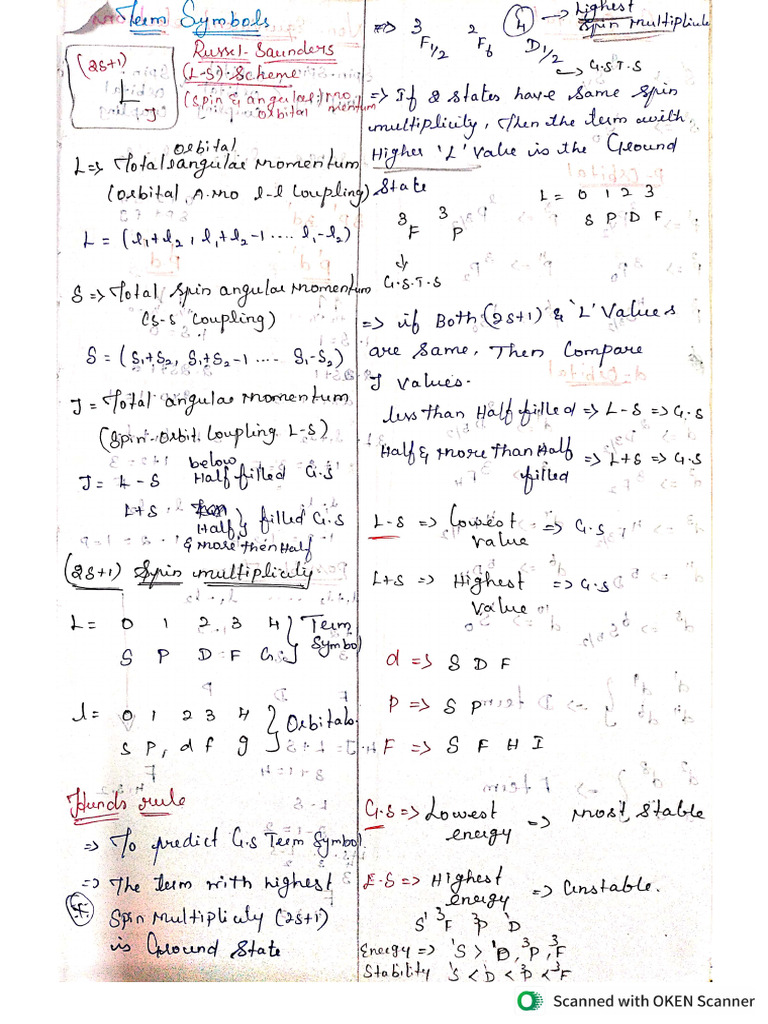 Term Symbols
(2S+1)
L
J
Russel-Saunders
(L-S) Scheme
(Spin & angular) mo
orbital mentum
orbital
L=> Total angular Momentum
(orbital A.Mo l-l Coupling)
L = (l₁+l₂, l₁+l₂-1 .... l₁-l₂)
S => Total Spin angular momentum
(S-S Coupling)
S = (S₁+S₂, S₁+S₂-1 .... S₁-S₂)
J = Total angular momentum
(Spin-Orbit Coupling L-S)
J = L-S below Half filled G.S
L+S Half & more then Half } filled G.S
(2S+1) Spin multiplicity
L = 0 1 2 3 4 } Term
S P D F G } Symbol
l = 0 1 2 3 4 } Orbitals
s p, d f g
Hunds rule
=> To predict G.S Term Symbol.
=> The term with highest
Spin Multiplicity (2S+1)
is Ground State
=> ³F1/2 ²F6 ④D1/2 → Highest Spin Multiplicit
→ G.S.T.S
=> If 2 states have same spin
multiplicity, Then the term with
Higher 'L' Value is the Ground
State
L = 0 1 2 3
S P D F
³F ³P
↓
G.S.T.S
=> if Both (2S+1) & 'L' Values
are same, Then Compare
J Values.
less than Half filled => L-S => G.S
Half & more than Half filled => L+S => G.S
L-S => Lowest value => G.S
L+S => Highest value => G.S
d => S D F
P => S P
F => S F H I
G.S => Lowest energy => most stable
E.S => Highest energy => Unstable.
S¹ ³F ³P ¹D
Energy => ¹S > ¹D, ³P, ³F
Stability ¹S < ¹D < ³P < ³F
Scanned with OKEN Scanner